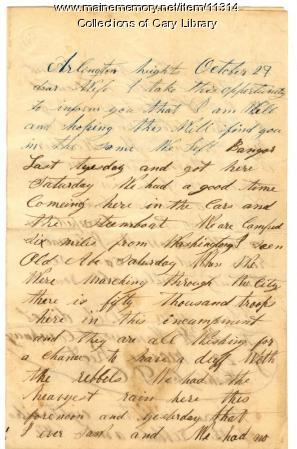 www.mainememory.net/item/11314
Collections of Cary Library
Arlington hights October 29
dear Wife I take this oppertunity
to inform you that I am Well
and hoping this Will find you
in the same We left Bangor
Last tyesday and got here
Saturday We had a good time
Comeing here in the Cars and
the steemboat We are Camped
six miles from Washington I seen
Old Abe Saturday When We
Were Marching through the City
there is fifty thousand troops
here in this incampment
and they are all Wishing for
a Chance to have a dash With
the rebbels We had the
heavyest rain here this
forenoon and yesterday that
I ever saw and We had no